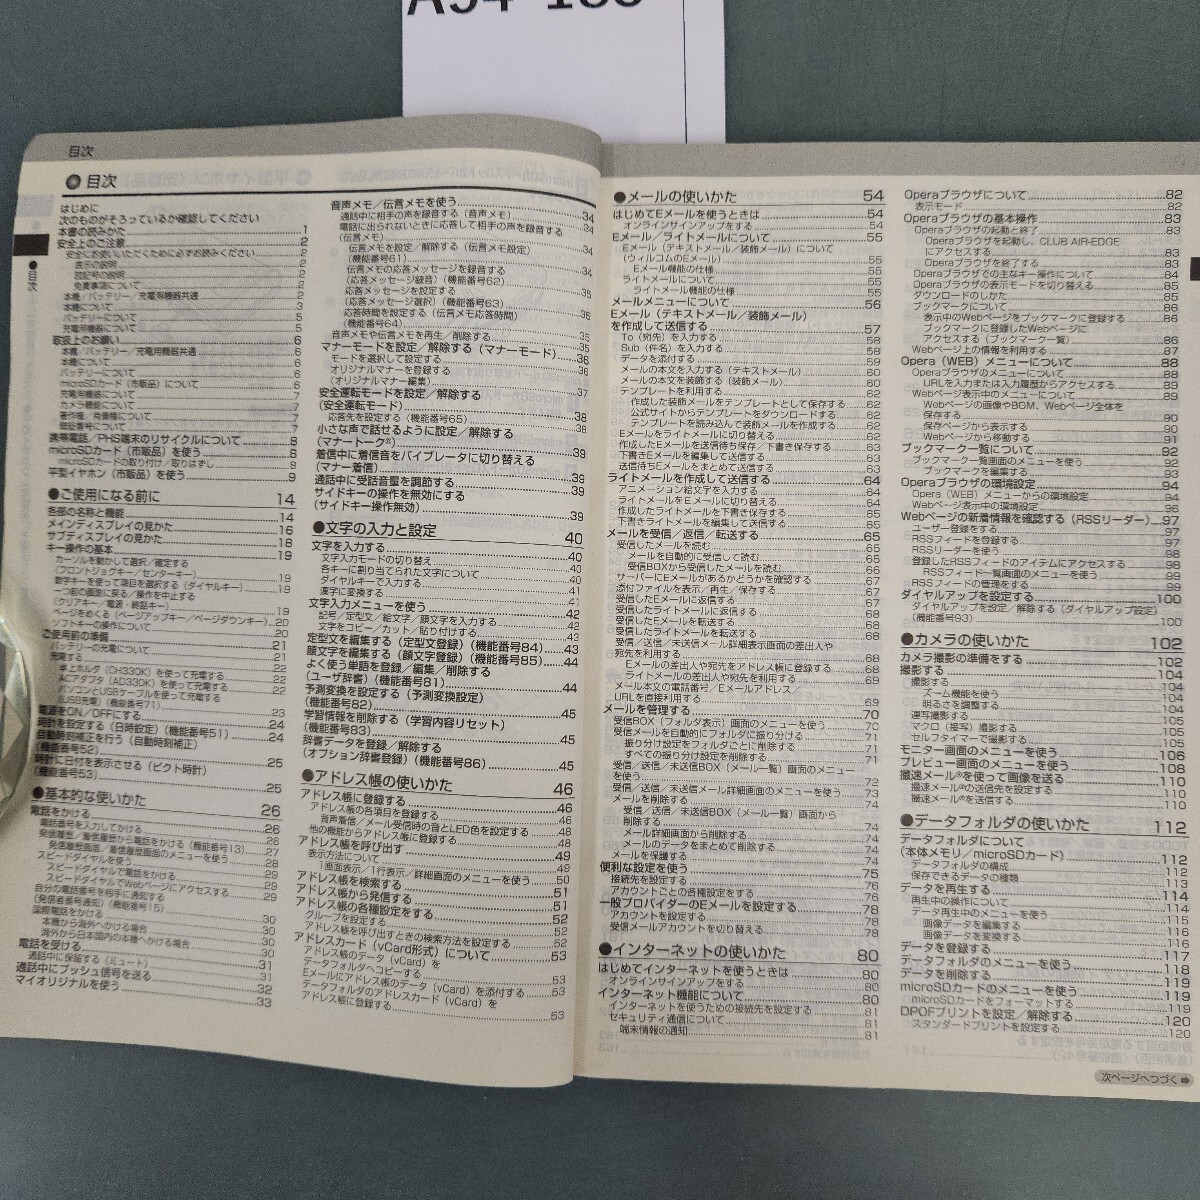 目次
目次
はじめに
次のものがそろっているか確認してください
本書の読みかた 1
安全上のご注意 2
安全にお使いいただくために必ずお読みください 2
表示の説明 2
図記号の説明 2
免責事項について 2
本機/バッテリー/充電用機器共通 2
本機について 3
バッテリーについて 5
充電用機器について 5
取扱上のお願い 6
本機/バッテリー/充電用機器共通 6
本機について 6
バッテリーについて 6
microSDカード(市販品)について 6
充電用機器について 7
カメラ機能について 7
著作権/肖像権について 7
暗証番号について 7
携帯電話/PHS端末のリサイクルについて 8
microSDカード(市販品)を使う 8
microSDカードの取り付け/取りはずし 9
平型イヤホン(市販品)を使う 9
●ご使用になる前に 14
各部の名称と機能 14
メインディスプレイの見かた 16
サブディスプレイの見かた 18
キー操作の基本 19
カーソルを動かして選択/確定する
(フロントジョグキー/センターキー) 19
数字キーを使って項目を選択する(ダイヤルキー) 19
一つ前の画面に戻る/操作を中止する
(クリアキー/電源・終話キー) 19
ページをめくる(ページアップキー/ページダウンキー) 20
ソフトキーの操作について 20
ご使用前の準備 21
バッテリーの充電について 21
充電する 22
卓上ホルダ(CH330K)を使って充電する 22
ACアダプタ(AD330K)を使って充電する 22
パソコンとUSBケーブルを使って充電する
(USB充電)(機能番号71) 23
電源をON/OFFにする 24
時計を設定する(日時設定)(機能番号51) 24
自動時刻補正を行う(自動時刻補正)
(機能番号52) 25
時計に日付を表示させる(ピクト時計)
(機能番号53) 25
●基本的な使いかた 26
電話をかける 26
電話番号を入力してかける 26
発信履歴/着信履歴から電話をかける(機能番号13) 27
発信履歴画面/着信履歴画面のメニューを使う 28
スピードダイヤルを使う 29
スピードダイヤルで電話をかける 29
スピードダイヤルでWebページにアクセスする 29
自分の電話番号を相手に通知する
(発信者番号通知)(機能番号15)
国際電話をかける 30
本機から海外へかける場合 30
海外から日本国内の本機へかける場合 30
電話を受ける 31
通話中に保留する(ミュート) 31
通話中にプッシュ信号を送る 32
マイオリジナルを使う 33
音声メモ/伝言メモを使う 34
通話中に相手の声を録音する(音声メモ)
電話に出られないときに応答して相手の声を録音する
(伝言メモ) 34
伝言メモを設定/解除する(伝言メモ設定)
(機能番号61) 34
伝言メモの応答メッセージを録音する
(応答メッセージ録音)(機能番号62) 35
応答メッセージを設定する
(応答メッセージ選択)(機能番号63)
応答時間を設定する(伝言メモ応答時間)
(機能番号64) 35
音声メモや伝言メモを再生/削除する 35
マナーモードを設定/解除する(マナーモード) 36
モードを選択して設定する
オリジナルマナーを登録する
(オリジナルマナー編集) 37
安全運転モードを設定/解除する
(安全運転モード) 38
応答先を設定する(機能番号65) 38
小さな声で話せるように設定/解除する
(マナートーク®) 39
着信中に着信音をバイブレータに切り替える
(マナー着信) 39
通話中に受話音量を調節する 39
サイドキーの操作を無効にする
(サイドキー操作無効) 39
●文字の入力と設定 40
文字を入力する 40
文字入力モードの切り替え 40
各キーに割り当てられた文字について 40
ダイヤルキーで入力する 41
漢字に変換する 41
文字入力メニューを使う 42
記号/定型文/絵文字/顔文字を入力する 42
文字をコピー/カット/貼り付けする 43
定型文を編集する(定型文登録)(機能番号84) 43
顔文字を編集する(顔文字登録)(機能番号85) 44
よく使う単語を登録/編集/削除する
(ユーザ辞書)(機能番号81) 44
予測変換を設定する(予測変換設定)
(機能番号82) 45
学習情報を削除する(学習内容リセット)
(機能番号83) 45
辞書データを登録/解除する
(オプション辞書登録)(機能番号86) 45
●アドレス帳の使いかた 46
アドレス帳に登録する 46
アドレス帳の各項目を登録する 46
音声着信/メール受信時の音とLED色を設定する 48
他の機能からアドレス帳に登録する 48
アドレス帳を呼び出す 49
表示方法について 49
1画面表示/1行表示/詳細画面のメニューを使う 50
アドレス帳を検索する 51
アドレス帳から発信する 51
アドレス帳の各種設定をする 52
グループを設定する 52
アドレス帳を呼び出しするときの検索方法を設定する 52
アドレスカード(vCard形式)について 53
アドレス帳のデータ(vCard)を
データフォルダへコピーする 53
Eメールにアドレス帳のデータ(vCard)を添付する 53
データフォルダのアドレスカード(vCard)を
アドレス帳に登録する 53
●メールの使いかた 54
はじめてEメールを使うときは 54
オンラインサインアップをする 54
Eメール/ライトメールについて 55
Eメール(テキストメール/装飾メール)について
(ウィルコムのEメール) 55
Eメール機能の仕様 55
ライトメールについて 55
ライトメール機能の仕様 55
メールメニューについて 56
Eメール(テキストメール/装飾メール)
を作成して送信する 57
To(宛先)を入力する 58
Sub(件名)を入力する 58
データを添付する 59
メールの本文を入力する(テキストメール) 60
メールの本文を装飾する(装飾メール) 60
テンプレートを利用する 62
作成した装飾メールをテンプレートとして保存する 62
公式サイトからテンプレートをダウンロードする 62
テンプレートを読み込んで装飾メールを作成する 62
Eメールをライトメールに切り替える 62
作成したEメールを送信待ち保存/下書き保存する 63
下書きEメールを編集して送信する 63
送信待ちEメールをまとめて送信する 63
ライトメールを作成して送信する 64
アニメーション絵文字を入力する 64
ライトメールをEメールに切り替える 65
作成したライトメールを下書き保存する 65
下書きライトメールを編集して送信する 65
メールを受信/返信/転送する 65
受信したメールを読む 66
メールを自動的に受信して読む 66
受信BOXから受信したメールを読む 66
サーバーにEメールがあるかどうかを確認する 67
添付ファイルを表示/再生/保存する 67
受信したEメールに返信する 67
受信したライトメールに返信する 68
受信したEメールを転送する 68
受信したライトメールを転送する 68
受信/送信/未送信メール詳細表示画面の差出人や
宛先を利用する 68
Eメールの差出人や宛先をアドレス帳に登録する 68
ライトメールの差出人や宛先を利用する 69
メール本文の電話番号/Eメールアドレス/
URLを直接利用する 69
メールを管理する 70
受信BOX(フォルダ表示)画面のメニューを使う 70
受信メールを自動的にフォルダに振り分ける 71
振り分け設定をフォルダごとに削除する 71
すべての振り分け設定を削除する 71
受信/送信/未送信BOX(メール一覧)画面のメニュー
を使う 72
受信/送信/未送信メール詳細画面のメニューを使う 73
メールを削除する 74
受信/送信/未送信BOX(メール一覧)画面から
削除する 74
メール詳細画面から削除する 74
メールのデータをまとめて削除する 74
メールを保護する 74
便利な設定を使う 75
接続先を設定する 76
アカウントごとの各種設定をする 76
一般プロバイダーのEメールを設定する 78
アカウントを設定する 78
受信メールアカウントを切り替える 78
●インターネットの使いかた 80
はじめてインターネットを使うときは 80
オンラインサインアップをする 80
インターネット機能について 80
インターネットを使うための接続先を設定する 81
セキュリティ通信について 81
端末情報の通知 81
Operaブラウザについて 82
表示モード 82
Operaブラウザの基本操作 83
Operaブラウザの起動と終了 83
Operaブラウザを起動し、CLUB AIR-EDGE
にアクセスする 83
Operaブラウザを終了する 83
Operaブラウザでの主なキー操作について 84
Operaブラウザの表示モードを切り替える 85
ダウンロードのしかた 85
ブックマークについて 86
表示中のWebページをブックマークに登録する 86
ブックマークに登録したWebページに
アクセスする(ブックマーク一覧) 86
Webページ上の情報を利用する 87
Opera(WEB)メニューについて 88
Operaブラウザのメニューについて 88
URLを入力または入力履歴からアクセスする 89
Webページ表示中のメニューについて 89
Webページの画像やBGM、Webページ全体を
保存する 90
保存ページから表示する 90
Webページから移動する 91
ブックマーク一覧について 92
ブックマーク一覧画面のメニューを使う 92
ブックマークを編集する 93
Operaブラウザの環境設定 94
Opera(WEB)メニューからの環境設定 94
Webページ表示中の環境設定 96
Webページの新着情報を確認する(RSSリーダー) 97
ユーザー登録をする 97
RSSフィードを登録する 97
RSSリーダーを使う 98
登録したRSSフィードのアイテムにアクセスする 98
RSSフィード一覧画面のメニューを使う 99
RSSフィードの管理をする 99
ダイヤルアップを設定する 100
ダイヤルアップを設定/解除する(ダイヤルアップ設定)
(機能番号93) 100
●カメラの使いかた 102
カメラ撮影の準備をする 102
撮影する 104
撮影する 104
ズーム機能を使う 104
明るさを調整する 104
連写撮影する 105
マクロ(接写)撮影する 105
セルフタイマーで撮影する 105
モニター画面のメニューを使う 106
プレビュー画面のメニューを使う 108
撮速メール®を使って画像を送る 110
撮速メール®の送信先を設定する 110
撮速メール®を送信する 110
●データフォルダの使いかた 112
データフォルダについて
(本体メモリ/microSDカード) 112
データフォルダの構成 112
保存できるデータの種類 113
データを再生する 114
再生中の操作について 114
データ再生中のメニューを使う 114
画像データを編集する 116
画像データを変換する 116
データを登録する 117
データフォルダのメニューを使う 118
データを削除する 119
microSDカードのメニューを使う 119
microSDカードをフォーマットする 119
DPOFプリントを設定/解除する 120
スタンダードプリントを設定する 120
次ページへつづく